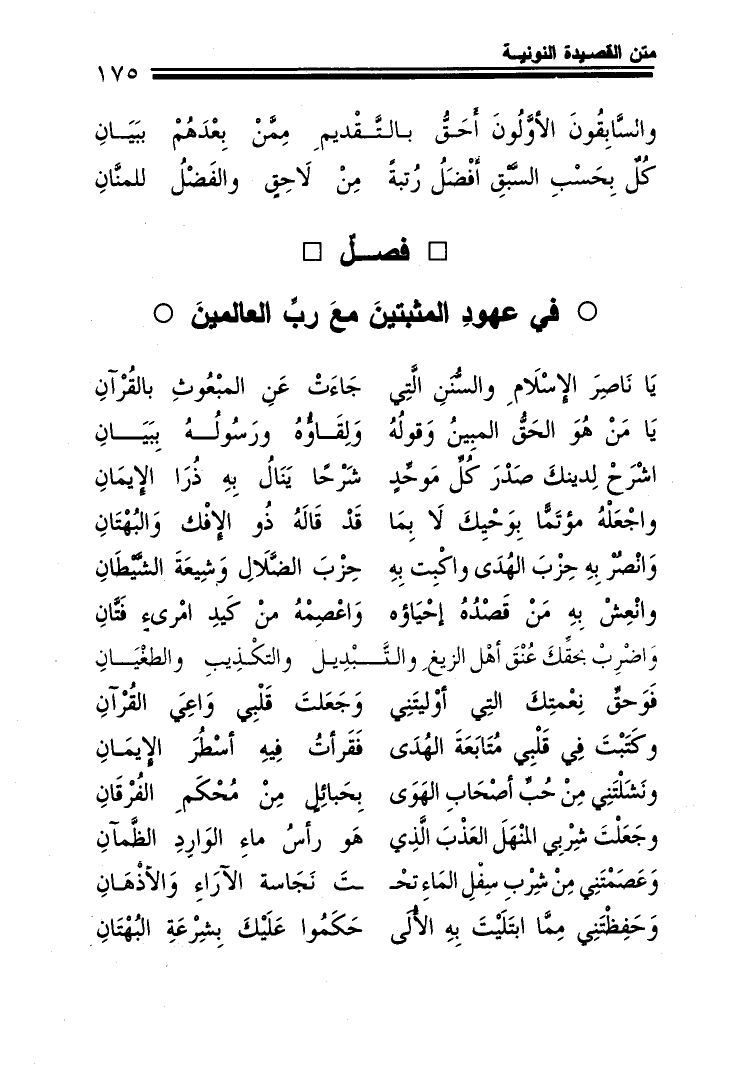 متن القصيدة النونية
١٧٥
والسَّابِقُونَ الأوَّلُونَ أَحَقُّ بـالـتَّـقْـديمِ مِمَّنْ بِعْدَهُمْ ببَيَـــانِ
كُلٌّ بِحَسْبِ السَّبْقِ أفْضَلُ رُتبةً مِنْ لَاحِقٍ والفَضْلُ للمنَّانِ
□ فصــلٌ □
○ في عهودِ المثبتينَ معَ ربِّ العالمينَ ○
يَا نَاصِرَ الإسْلَامِ والسُّنَنِ الَّتِي جَاءَتْ عَنِ المَبْعُوثِ بالقُرْآنِ
يَا مَنْ هُوَ الحَقُّ المبِينُ وَقولُهُ وَلِقَــاؤُهُ ورَسُولُــــهُ بِبَيَـــانِ
اشْرَحْ لِدينكَ صَدْرَ كُلِّ مَوحِّدٍ شَرْحًا يَنَالُ بِهِ ذُرَا الإيمَانِ
واجْعَلْهُ مؤتَمًّا بِوَحْيِكَ لَا بِمَا قَدْ قَالَهُ ذُو الإفْكِ وَالبُهْتَانِ
وَانْصُرْ بِهِ حِزْبَ الهُدَى واكْبِت بِهِ حِزْبَ الضَّلَالِ وَشِيعَةَ الشَّيْطَانِ
وانْعِشْ بِهِ مَنْ قَصْدُهُ إحْيَاؤه وَاعْصِمْهُ منْ كَيدِ امْرىءٍ فَتَّانِ
وَاضْرِبْ بحقِّكَ عُنْقَ أهْلِ الزيغِ والتَّــبْدِيـلِ والتكْذِيبِ والطغْيَــانِ
فَوَحقِّ نِعْمتِكَ التِي أوْليتَنِي وَجَعَلتَ قَلْبِي وَاعِيَ القُرْآنِ
وكَتَبْتَ فِي قَلْبِي مُتَابَعَةَ الهُدَى فَقَرأتُ فِيهِ أسْطُرَ الإيمَانِ
ونَشَلْتَنِي مِنْ حُبِّ أصْحَابِ الهَوَى بِحَبائلٍ مِنْ مُحْكَمِ الفُرْقَانِ
وجَعَلْتَ شِرْبِي المَنْهَلَ العَذْبَ الَّذِي هَو رأسُ ماءِ الوَارِدِ الظَّمآنِ
وَعَصَمْتَنِي مِنْ شِربِ سِفْلِ المَاءِ تحْـ ـتَ نَجَاسةِ الآرَاءِ وَالأذْهَـانِ
وَحَفِظْتَنِي مِمَّا ابتَلَيْتَ بِهِ الأُلَى حَكَمُوا عَلَيْكَ بِشِرْعَةِ البُهْتَانِ